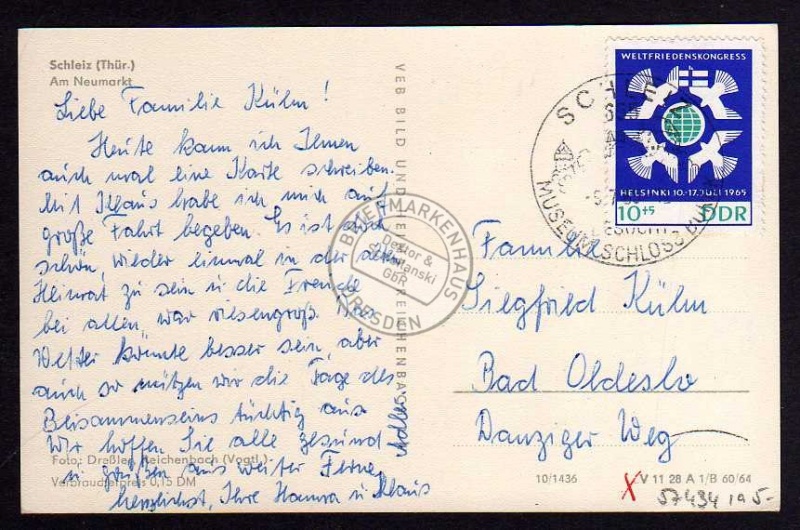 Schleiz (Thür.)
Am Neumarkt
Liebe Familie Kühn!
Heute kann ich Ihnen
auch mal eine Karte schreiben.
Mit Klaus habe ich mich auf
große Fahrt begeben. Es ist sehr
schön, wieder einmal in der alten
Heimat zu sein u. die Freude
bei allen war riesengroß. Das
Wetter könnte besser sein, aber
auch so nützen wir die Tage des
Beisammenseins tüchtig aus.
Wir hoffen Sie alle gesund
u. grüßen aus weiter Ferne
herzlichst, Ihre u. Klaus
Adler
Foto: Dreßler, Reichenbach (Vogtl.)
Verbraucherpreis 0,15 DM
VEB BILD UND HEIMAT REICHENBACH
BRIEFMARKENHAUS
Dextor &
GbR
DRESDEN
WELTFRIEDENSKONGRESS
HELSINKI 10.-17. JULI 1965
10+5 DDR
SCHLEIZ
MUSEUM SCHLOSS BURGK
Familie
Siegfried Kühn
Bad Oldeslo
Danziger Weg
10/1436
V 11 28 A 1/B 60/64
X
57434 5-